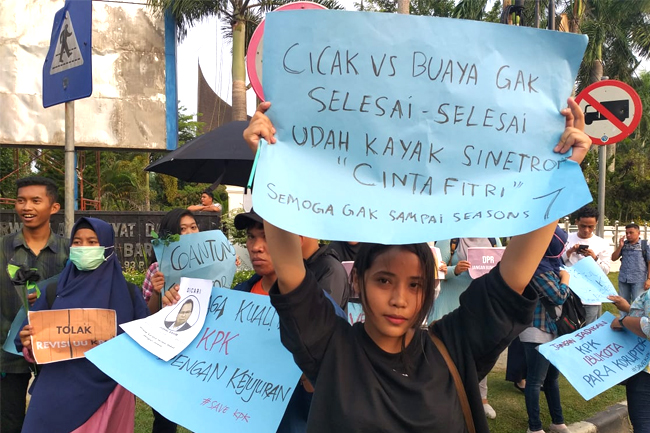 CICAK VS BUAYA GAK
SELESAI-SELESAI
UDAH KAYAK SINETRON
"CINTA FITRI"
SEMOGA GAK SAMPAI SEASONS 7
DICARI
TOLAK
REVISI UU
KUALI
KPK
DENGAN KEJUJURAN
#SAVE KPK
DPR
JANGAN JADIKAN
KPK
IBUKOTA
PARA KORUPTOR